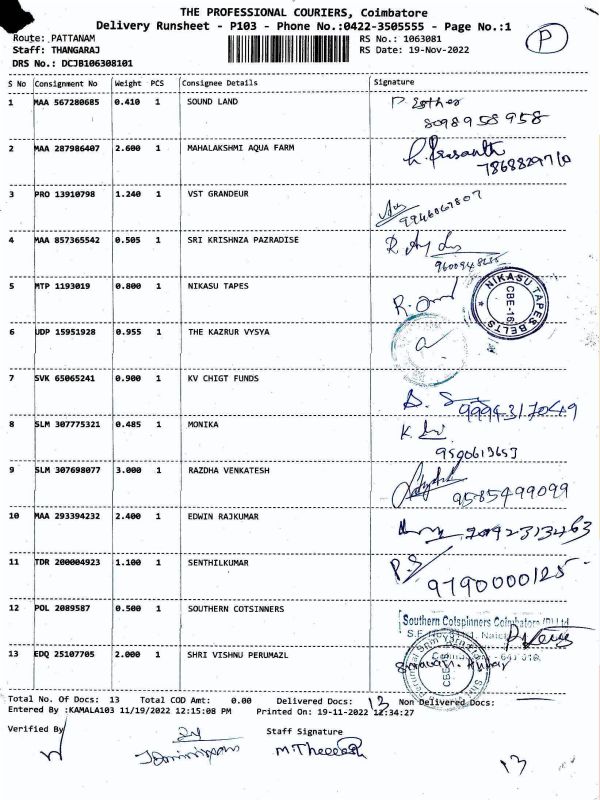 THE PROFESSIONAL COURIERS, Coimbatore
Delivery Runsheet - P103 - Phone No.:0422-3505555 - Page No.:1
Route: PATTANAM
RS No.: 1063081
P
Staff: THANGARAJ
RS Date: 19-Nov-2022
DRS No.: DCJB106308101
S No Consignment No Weight PCS Consignee Details Signature
1 MAA 567280685 0.410 1 SOUND LAND
8098958958
2 MAA 287986407 2.600 1 MAHALAKSHMI AQUA FARM
3 PRO 13910798 1.240 1 VST GRANDEUR
4 MAA 857365542 0.505 1 SRI KRISHNZA PAZRADISE
5 MTP 1193019 0.800 1 NIKASU TAPES
NIKASU TAPES BELTS CBE-16
6 UDP 15951928 0.955 1 THE KAZRUR VYSYA
7 SVK 65065241 0.900 1 KV CHIGT FUNDS
9994317049
8 SLM 307775321 0.485 1 MONIKA
9590613653
9 SLM 307698077 3.000 1 RAZDHA VENKATESH
9585499099
10 MAA 293394232 2.400 1 EDWIN RAJKUMAR
7092313463
11 TDR 200004923 1.100 1 SENTHILKUMAR
P.S
9790000125
12 POL 2089587 0.500 1 SOUTHERN COTSINNERS
Southern Cotspinners Coimbatore (P) Ltd
13 EDQ 25107705 2.000 1 SHRI VISHNU PERUMAZL
Total No. Of Docs: 13 Total COD Amt: 0.00 Delivered Docs: 13 Non Delivered Docs:
Entered By :KAMALA103 11/19/2022 12:15:08 PM Printed On: 19-11-2022 12:34:27
Verified By
Staff Signature
13